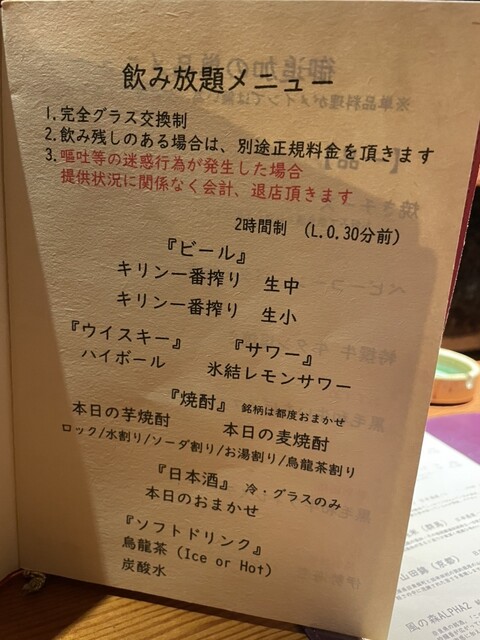 飲み放題メニュー
1.完全グラス交換制
2.飲み残しのある場合は、別途正規料金を頂きます
3.嘔吐等の迷惑行為が発生した場合
提供状況に関係なく会計、退店頂きます
2時間制 (L.O.30分前)
『ビール』
キリン一番搾り 生中
キリン一番搾り 生小
『ウイスキー』 『サワー』
ハイボール 氷結レモンサワー
『焼酎』 銘柄は都度おまかせ
本日の芋焼酎 本日の麦焼酎
ロック/水割り/ソーダ割り/お湯割り/烏龍茶割り
『日本酒』 冷・グラスのみ
本日のおまかせ
『ソフトドリンク』
烏龍茶 (Ice or Hot)
炭酸水
山田錦 (京都)
風の森ALPHA2